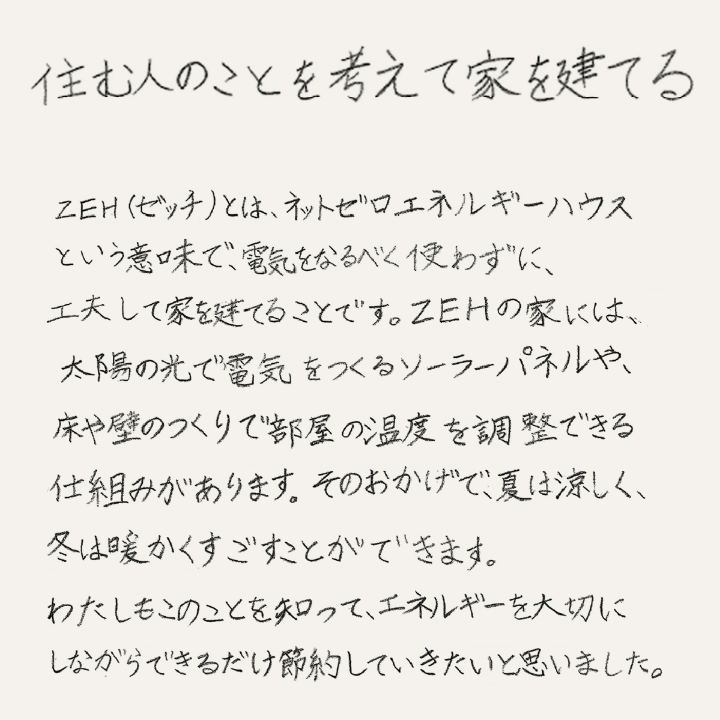 住む人のことを考えて家を建てる
ZEH(ゼッチ)とは、ネットゼロエネルギーハウス
という意味で、電気をなるべく使わずに、
工夫して家を建てることです。ZEHの家には、
太陽の光で電気をつくるソーラーパネルや、
床や壁のつくりで部屋の温度を調整できる
仕組みがあります。そのおかげで、夏は涼しく、
冬は暖かくすごすことができます。
わたしもこのことを知って、エネルギーを大切に
しながらできるだけ節約していきたいと思いました。